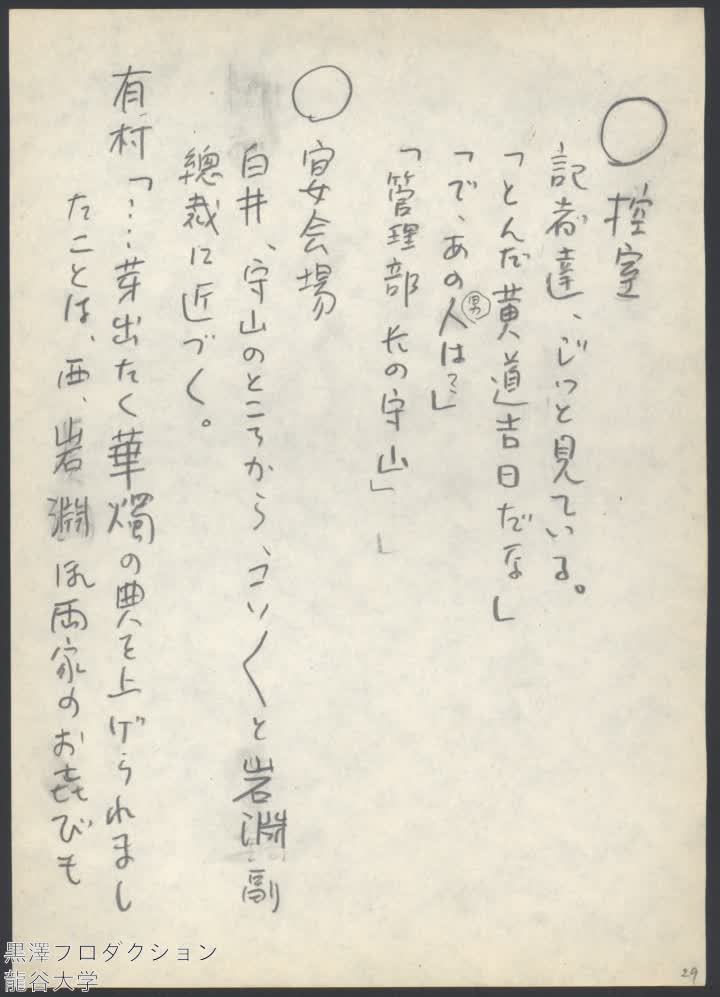 ○ 控室
記者達、じっと見ている。
「とんだ黄道吉日だな」
「で、あの人は?」
男
「管理部長の守山」
○ 宴会場
白井、守山のところから、こい〱と岩淵副
総裁に近づく。
有村「……芽出たく華燭の典を上げられまし
たことは、西、岩淵 両家のお喜びも
29
黒澤プロダクション
龍谷大学